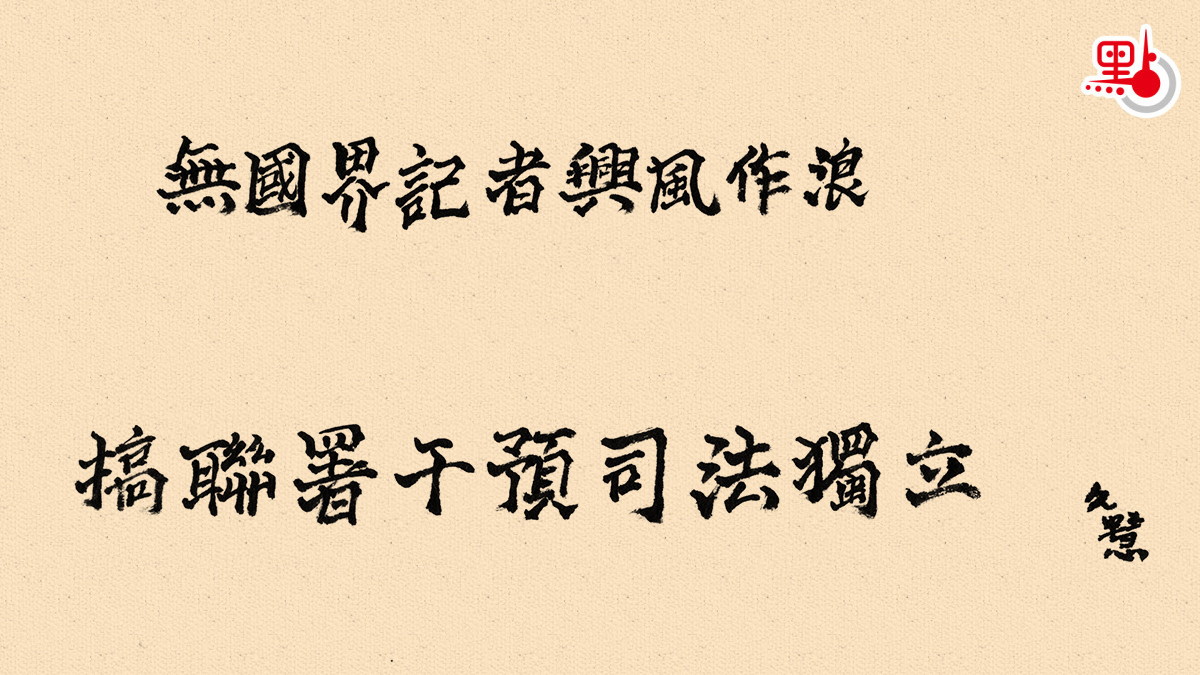 點
無國界記者興風作浪
搞聯署干預司法獨立